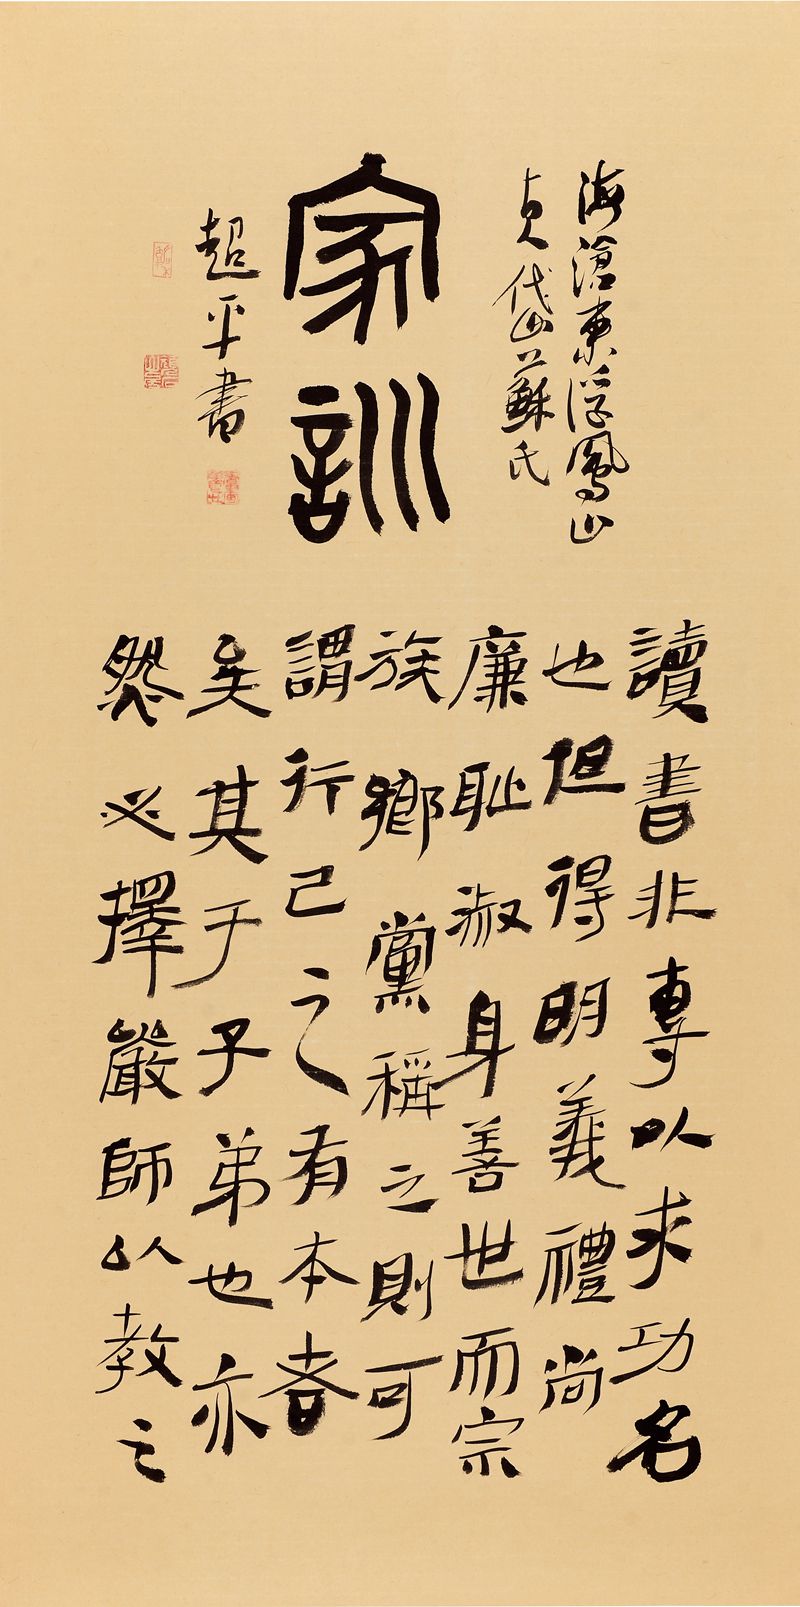 海滄東浮鳳山
貞岱山蘇氏
家訓
超平書
讀書非專以求功名
也担得明義禮尚
廉恥淑身善世而宗
族鄉黨稱之則可
謂行己之有本者
矣其于子弟也亦
然必擇嚴師以教之